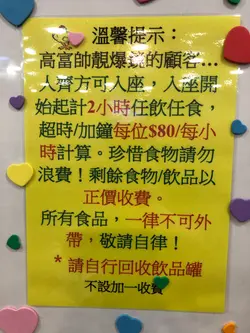 溫馨提示：
高富帥靚爆鏡的顧客…
人齊方可入座，入座開
始起計2小時任飲任食，
超時/加鐘每位$80/每小
時計算。珍惜食物請勿
浪費！剩餘食物/飲品以
正價收費。
所有食品，一律不可外
帶，敬請自律！
* 請自行回收飲品罐
不設加一收費